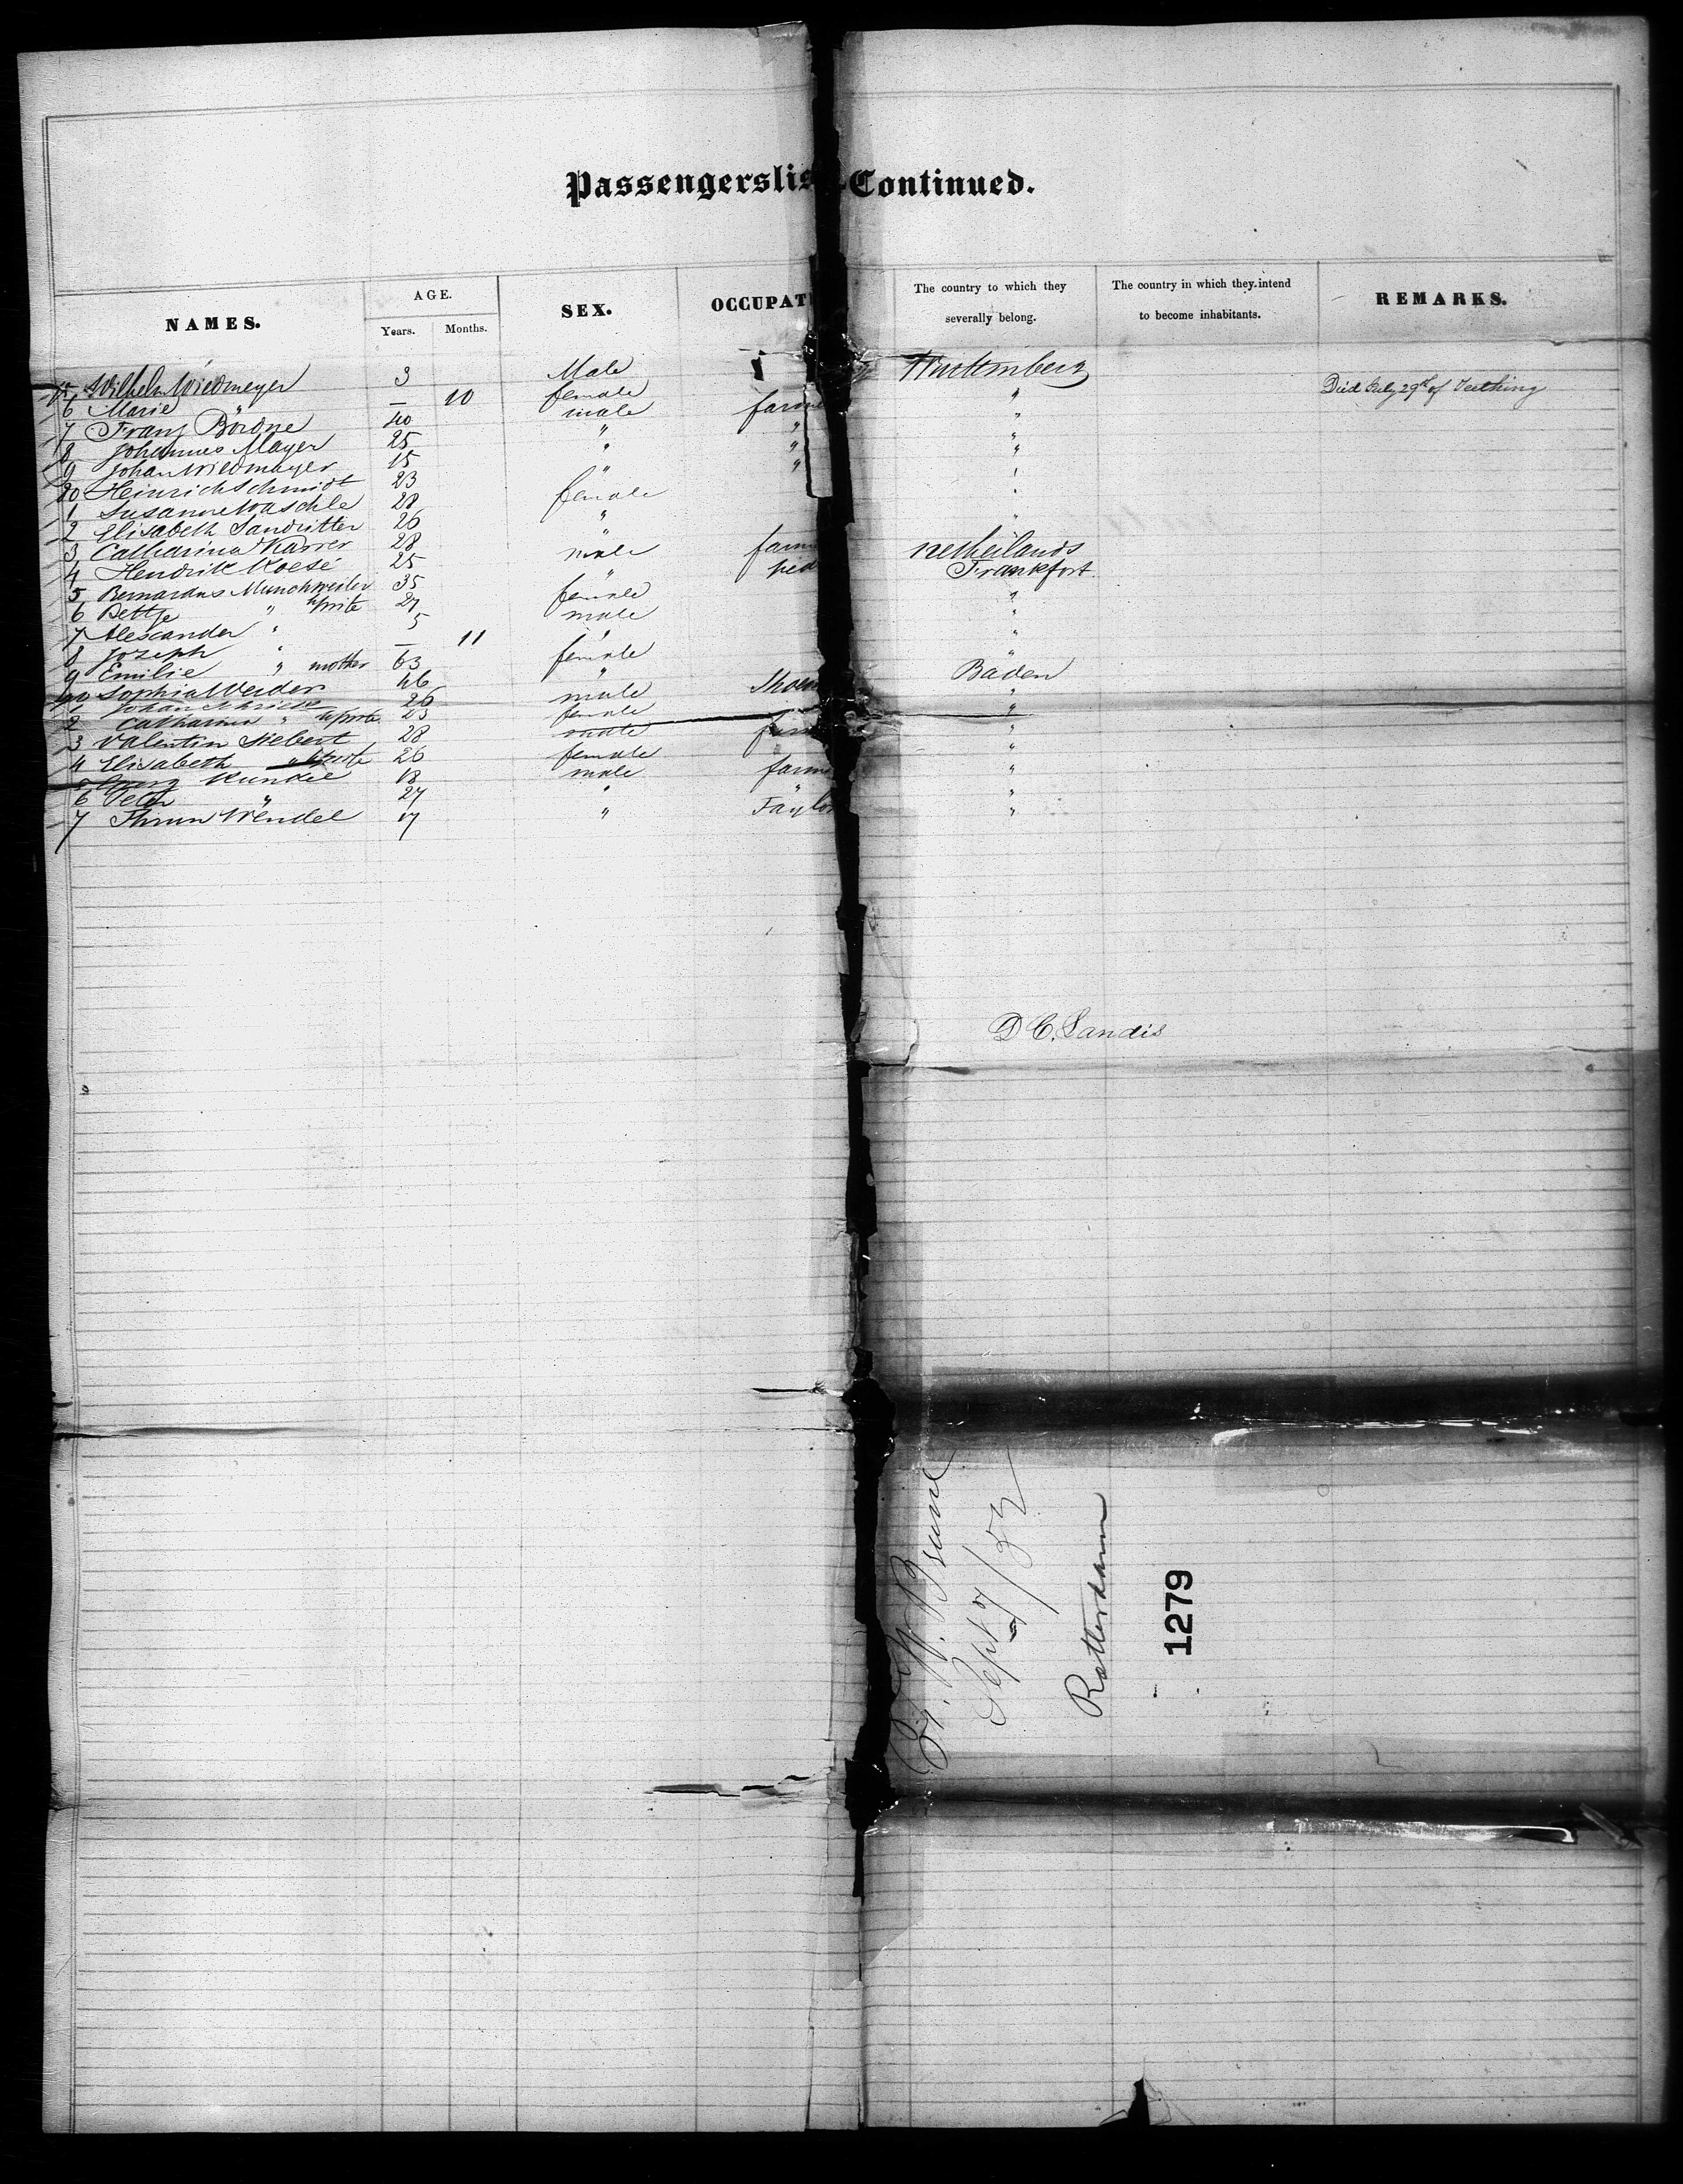 Passengerslis Continued.
NAMES. AGE. Years. Months. SEX. OCCUPAT The country to which they severally belong. The country in which they intend to become inhabitants. REMARKS.
15 Wilhelm Wiedmeyer 3 Male Wurttemberg
6 Marie " — 10 female " Died July 29th of Teething
7 Franz Bördne 40 male farme "
8 Johannes Mayer 25 " " "
9 Johan Wiedmayer 15 " " "
80 Heinrich Schmidt 23 " " "
1 Susanne Waschle 28 female "
2 Elisabeth Sandritter 26 " "
3 Catharina Karrer 28 "
4 Hendrik Koese 25 male farm Netherlands
5 Bernardus Munchweiler 35 " ped Frankfort
6 Bettje " 27 female "
7 Alexander " 5 male "
8 Joseph " — 11 " "
9 Emilie " mother 63 female "
90 Sophia Weider 46 " Baden
1 Johan 26 male Shoem "
2 Catharina " 23 female "
3 Valentin Siebert 28 male farm "
4 Elisabeth " 26 female "
5 Georg Kundel 18 male farm "
6 Peter " 27 " "
7 Wendel 17 " Taylor "
D C. Landis
Bk. W. Brune
Sept 7/53
Rotterdam
1279